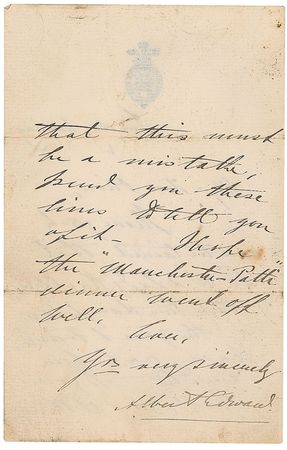 that this must
be a mistake,
send you these
lines to tell you
of it – I hope
the "Manchester-Patti"
dinner went off
well.
Ever,
Yrs very sincerely
Albert Edward